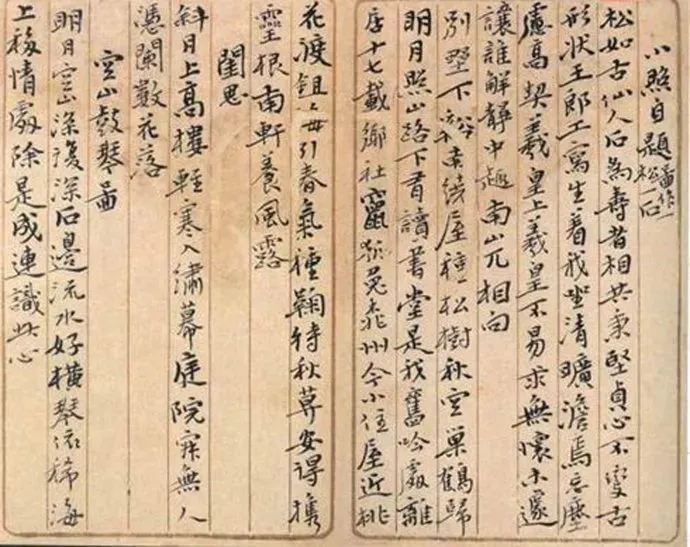 小照自題 畫作一松一石
松如古仙人石為壽者相共秉堅貞心不變古
形狀王郎工寫生着我坐清曠澹焉忘塵
慮高契羲皇上羲皇不易求無懷未遽
讓誰解靜中趣南山兀相向
別墅下繞屋種松樹秋空巢鶴歸
明月照山路下有讀書堂是我舊吟處離
居十七載鄉社竄狐兔州今小住屋近桃
花渡鉏引春氣種鞠待秋莫安得携
靈根南軒養風露
閨思
斜日上高樓輕寒入繡幕庭院寂無人
憑闌數花落
空山鼓琴圖
明月空山深復深石邊流水好橫琴依稀海
上移情處除是成連識此心